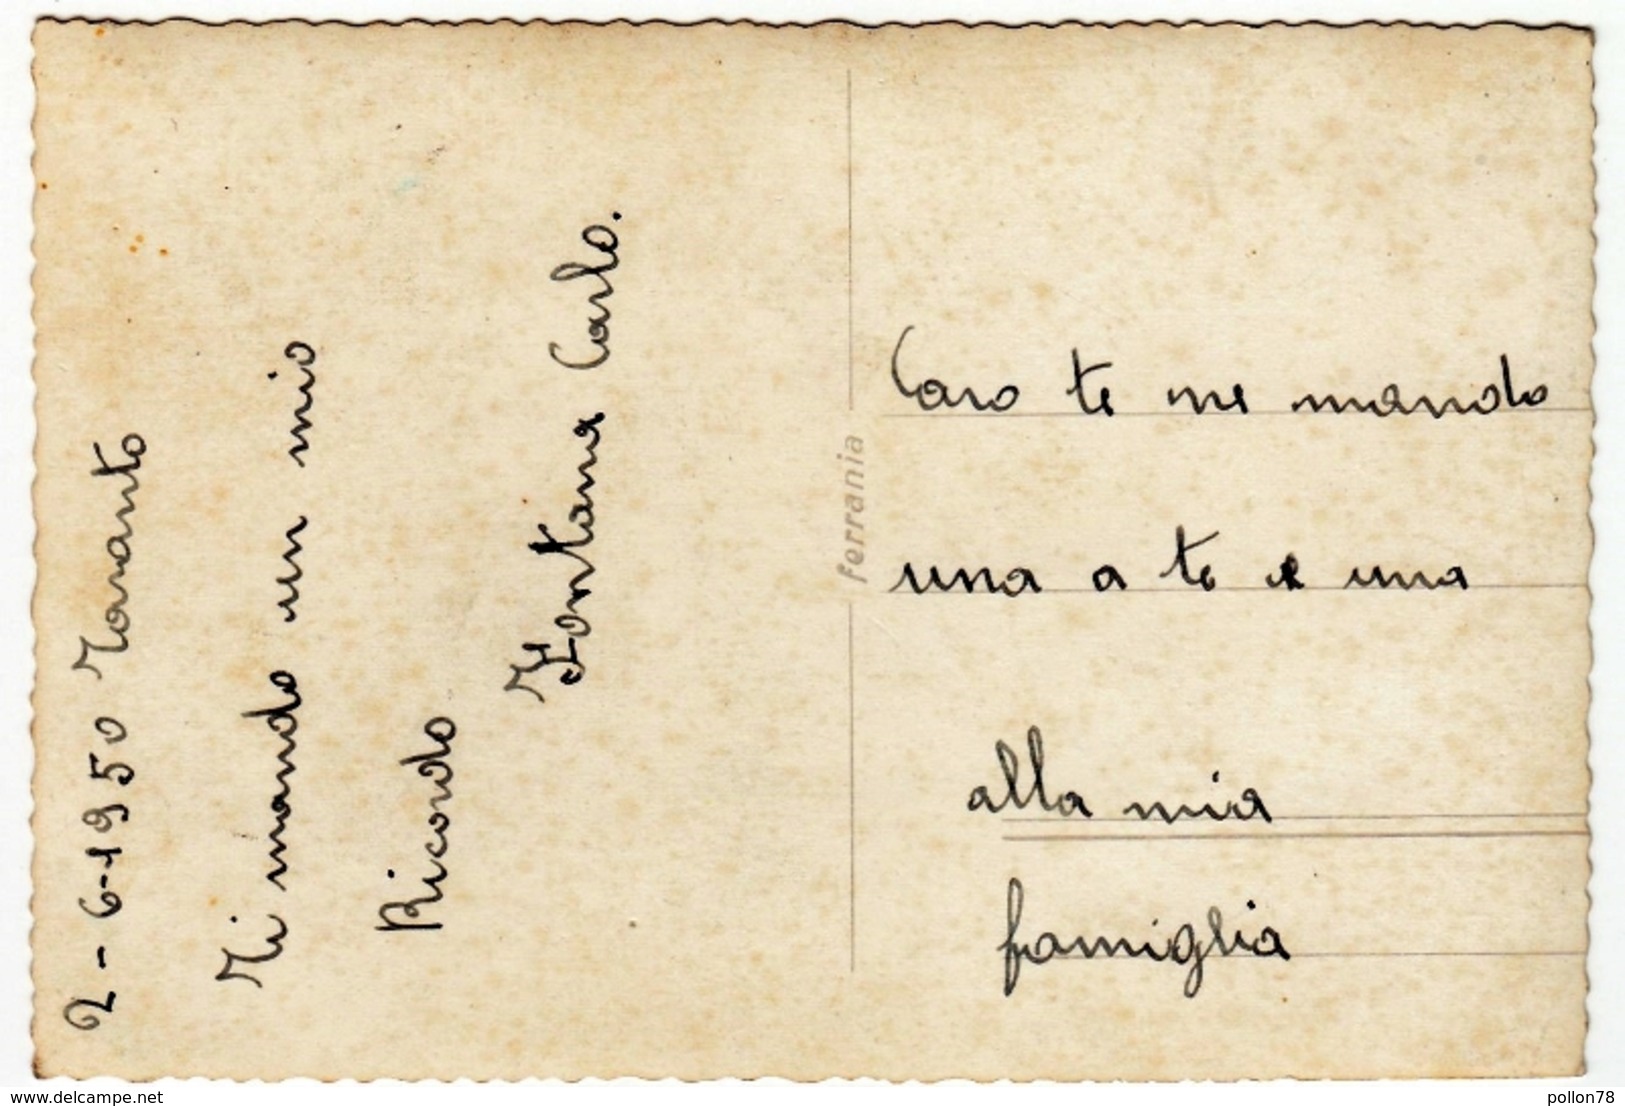 2-6-1950 Taranto
Ti mando un mio
Ricordo
Fontana Carlo.
ferrania
Caro te ne mando
una a te e una
alla mia
famiglia
www.delcampe.net
pollon78